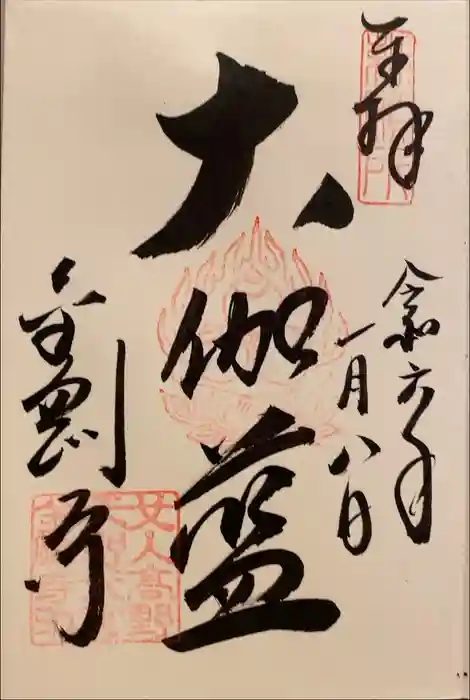 奉拝
令和六年
一月八日
大伽藍
金剛寺
女人高野